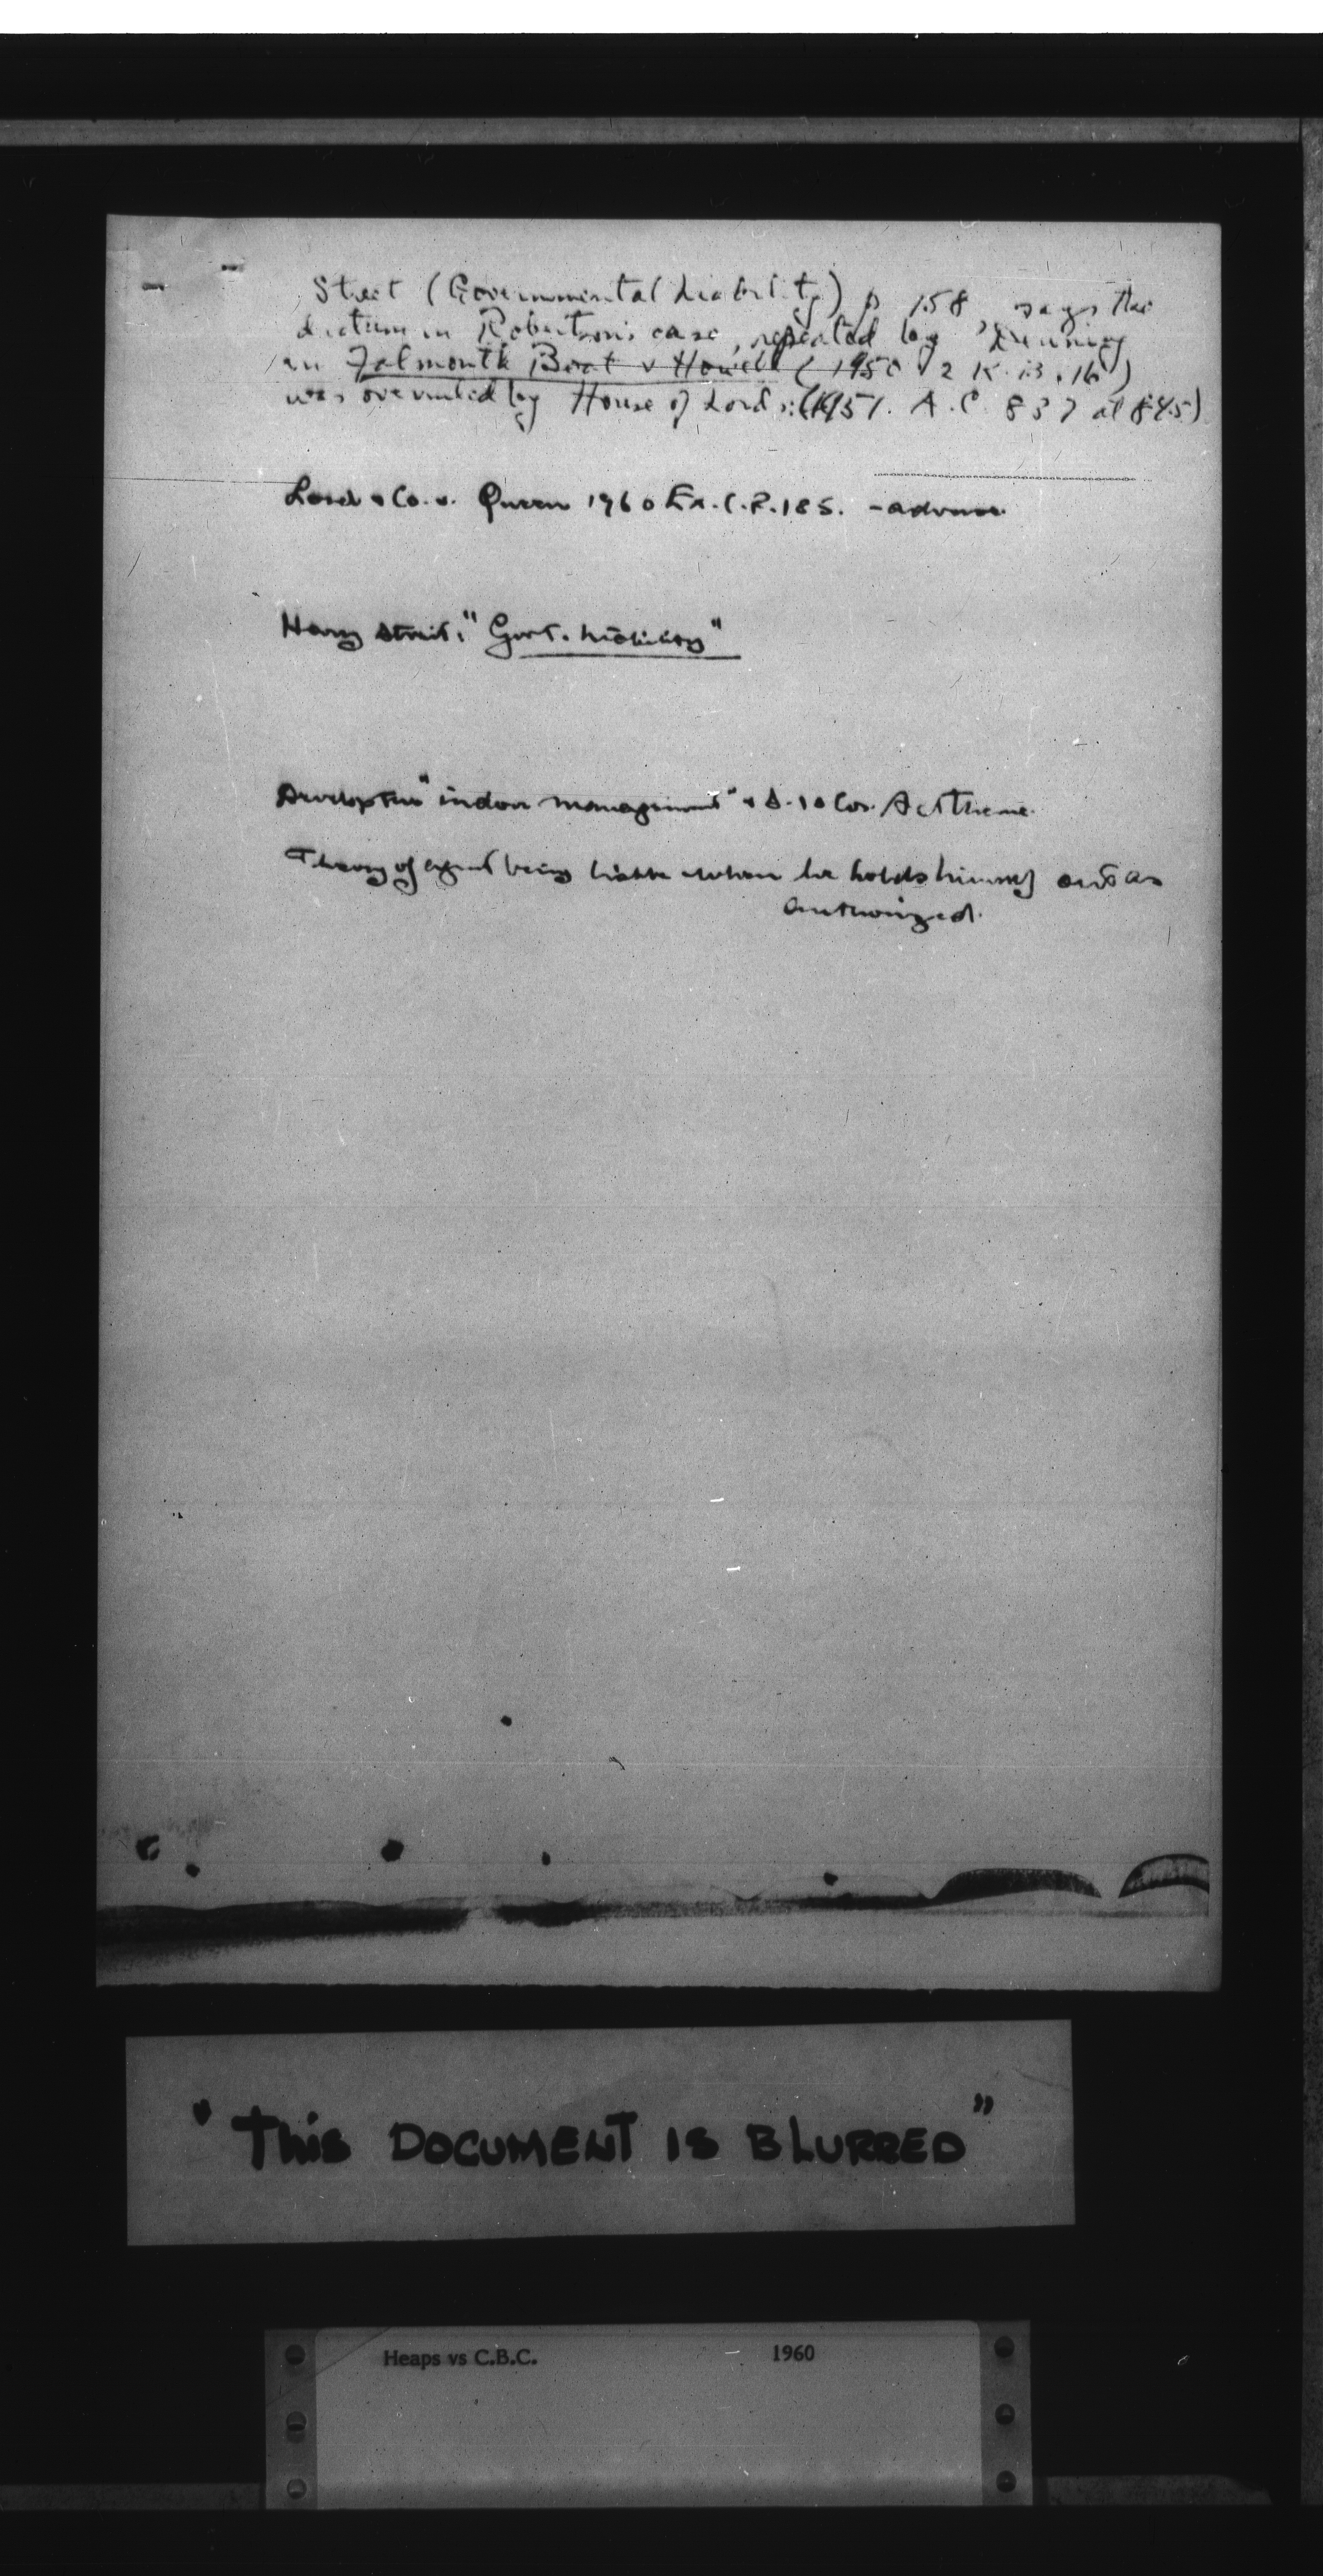 Street (Governmental Liability) p 158 says the
dictum in Robertson's case, repeated by Denning
in Falmouth Boat v Howell (1950 2 K.B. 16)
was overruled by House of Lords: (1951. A.C. 837 at 845)
& Co. v. Queen 1960 Ex. C.R. 185. -
Harry Street, "Govt. Liability"
"indoor management" & S. 10 Act theme.
Theory of agent being liable when he holds himself out as
authorized.
"THiS DOCUMENT IS BLURRED"
Heaps vs C.B.C. 1960